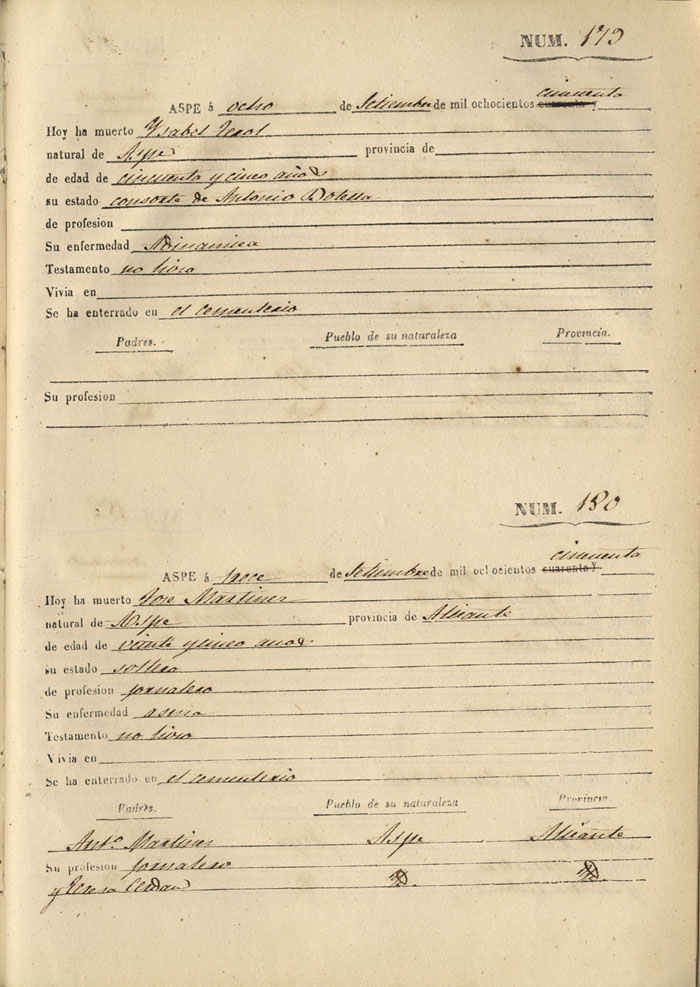 NUM. 179
cincuenta
ASPE á ocho de Setiembre de mil ochocientos cuarenta y
Hoy ha muerto Ysabel Terol
natural de Aspe provincia de
de edad de cincuenta y cinco años
su estado consorte de Antonio Botella
de profesion
Su enfermedad Adinamica
Testamento no hizo
Vivia en
Se ha enterrado en el cementerio
Padres. Pueblo de su naturaleza Provincia.
Su profesion
NUM. 180
cincuenta
ASPE á trece de Setiembre de mil ochosientos cuarenta y
Hoy ha muerto Jose Martinez
natural de Aspe provincia de Alicante
de edad de veinte y cinco años
su estado soltero
de profesion jornalero
Su enfermedad asma
Testamento no hizo
Vivia en
Se ha enterrado en el cementerio
Padres. Pueblo de su naturaleza Provincia.
Antº Martinez Aspe Alicante
Su profesion jornalero
y Teresa Cerdan